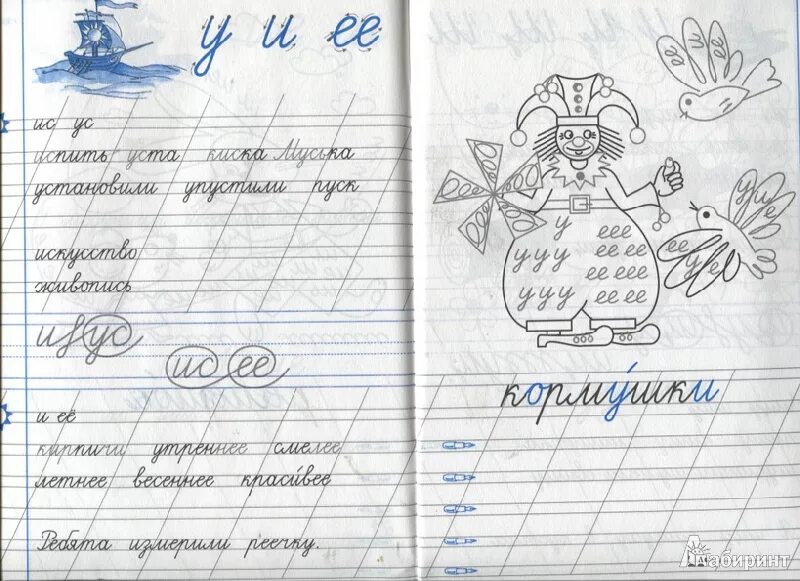 у и ее
ис ус
испить уста киска Муська
установили упустили пуск
искусство
живопись
и ус
ис ее
и её
кирпичи утреннее смелее
летнее весеннее краси́вее
Ребята измерили реечку.
е и е
у и е
ее
у ее
у еее
ууу ее ее
ее еее
ууу ее ее
корму́шки
Лабиринт